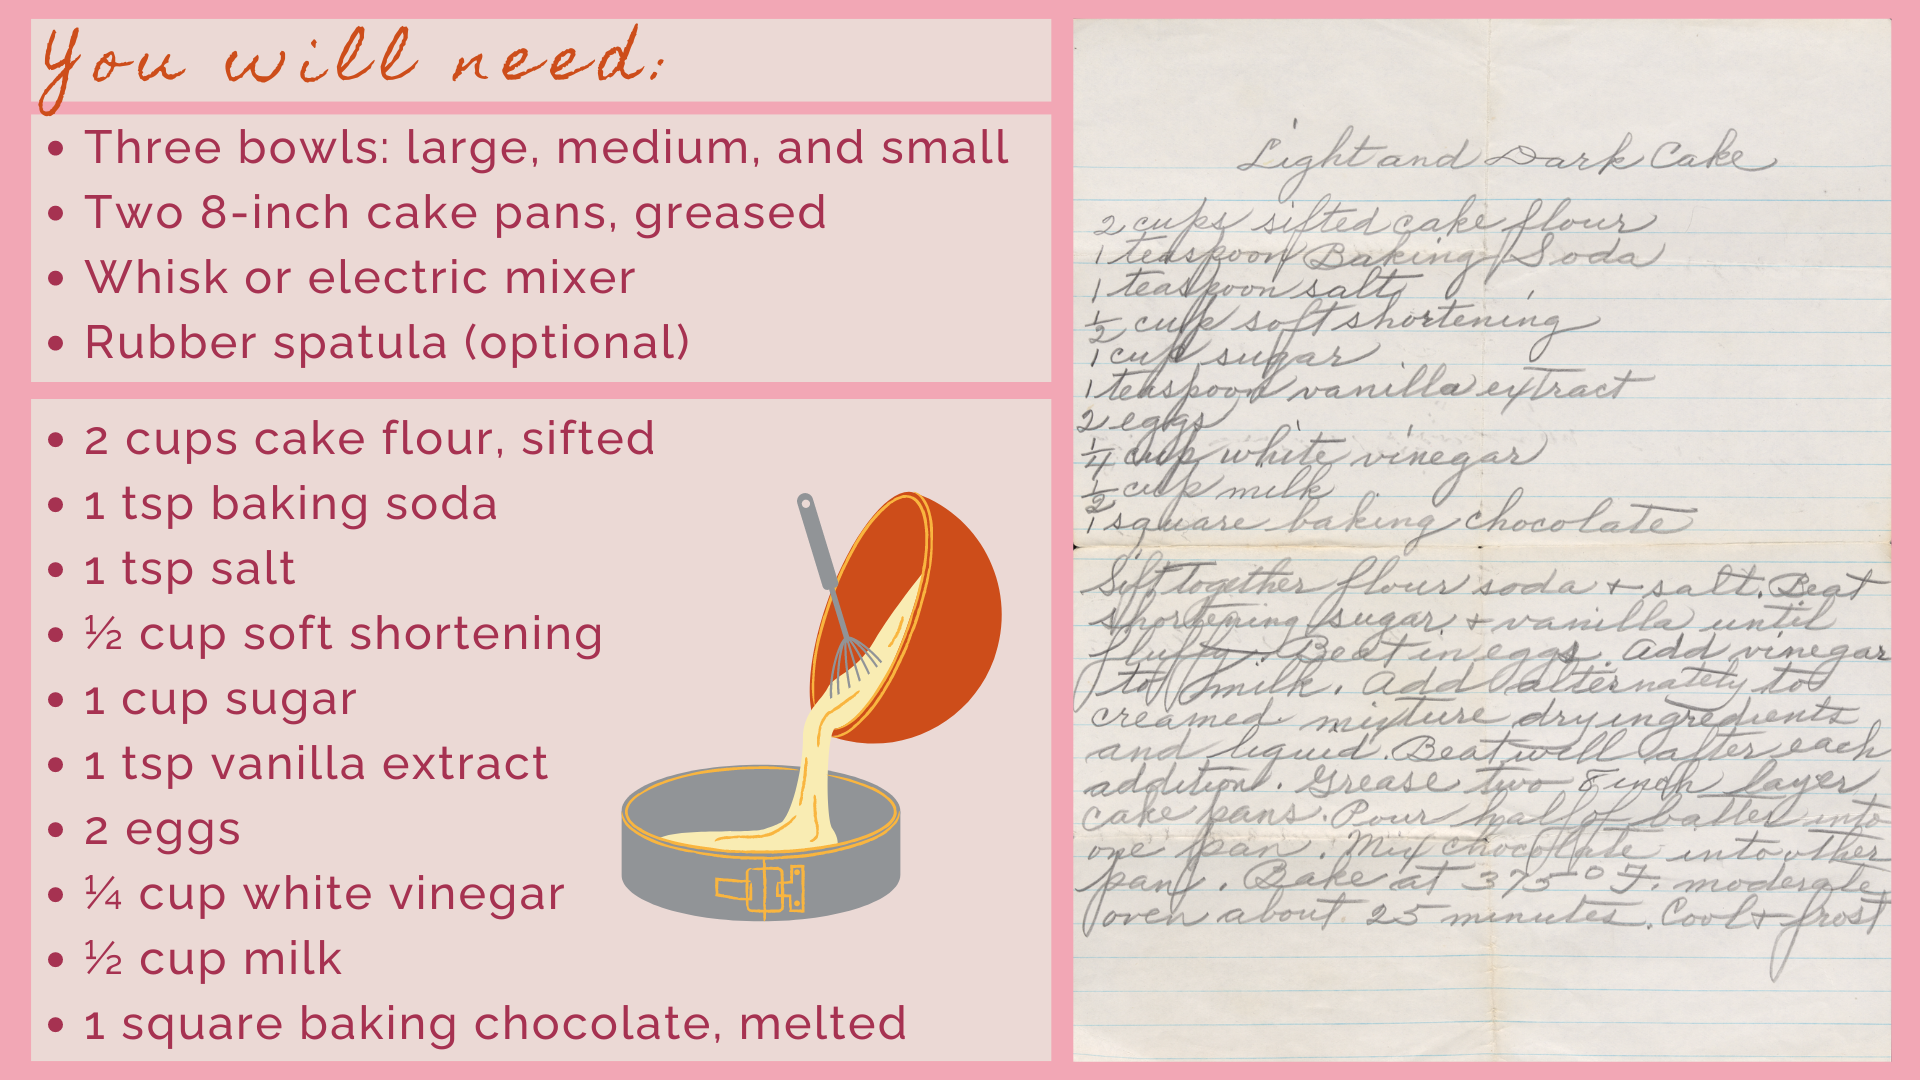 You will need:
• Three bowls: large, medium, and small
• Two 8-inch cake pans, greased
• Whisk or electric mixer
• Rubber spatula (optional)
• 2 cups cake flour, sifted
• 1 tsp baking soda
• 1 tsp salt
• ½ cup soft shortening
• 1 cup sugar
• 1 tsp vanilla extract
• 2 eggs
• ¼ cup white vinegar
• ½ cup milk
• 1 square baking chocolate, melted
Light and Dark Cake
2 cups sifted cake flour
1 teaspoon Baking Soda
1 teaspoon salt
½ cup soft shortening
1 cup sugar
1 teaspoon vanilla extract
2 eggs
¼ cup white vinegar
½ cup milk
1 square baking chocolate
Sift together flour soda + salt. Beat
shortening sugar + vanilla until
fluffy. Beat in eggs. Add vinegar
to milk. Add alternately to
creamed mixture dry ingredients
and liquid. Beat well after each
addition. Grease two 8 inch layer
cake pans. Pour half of batter into
one pan. Mix chocolate into other
pan. Bake at 375° F. moderate
oven about 25 minutes. Cool + frost